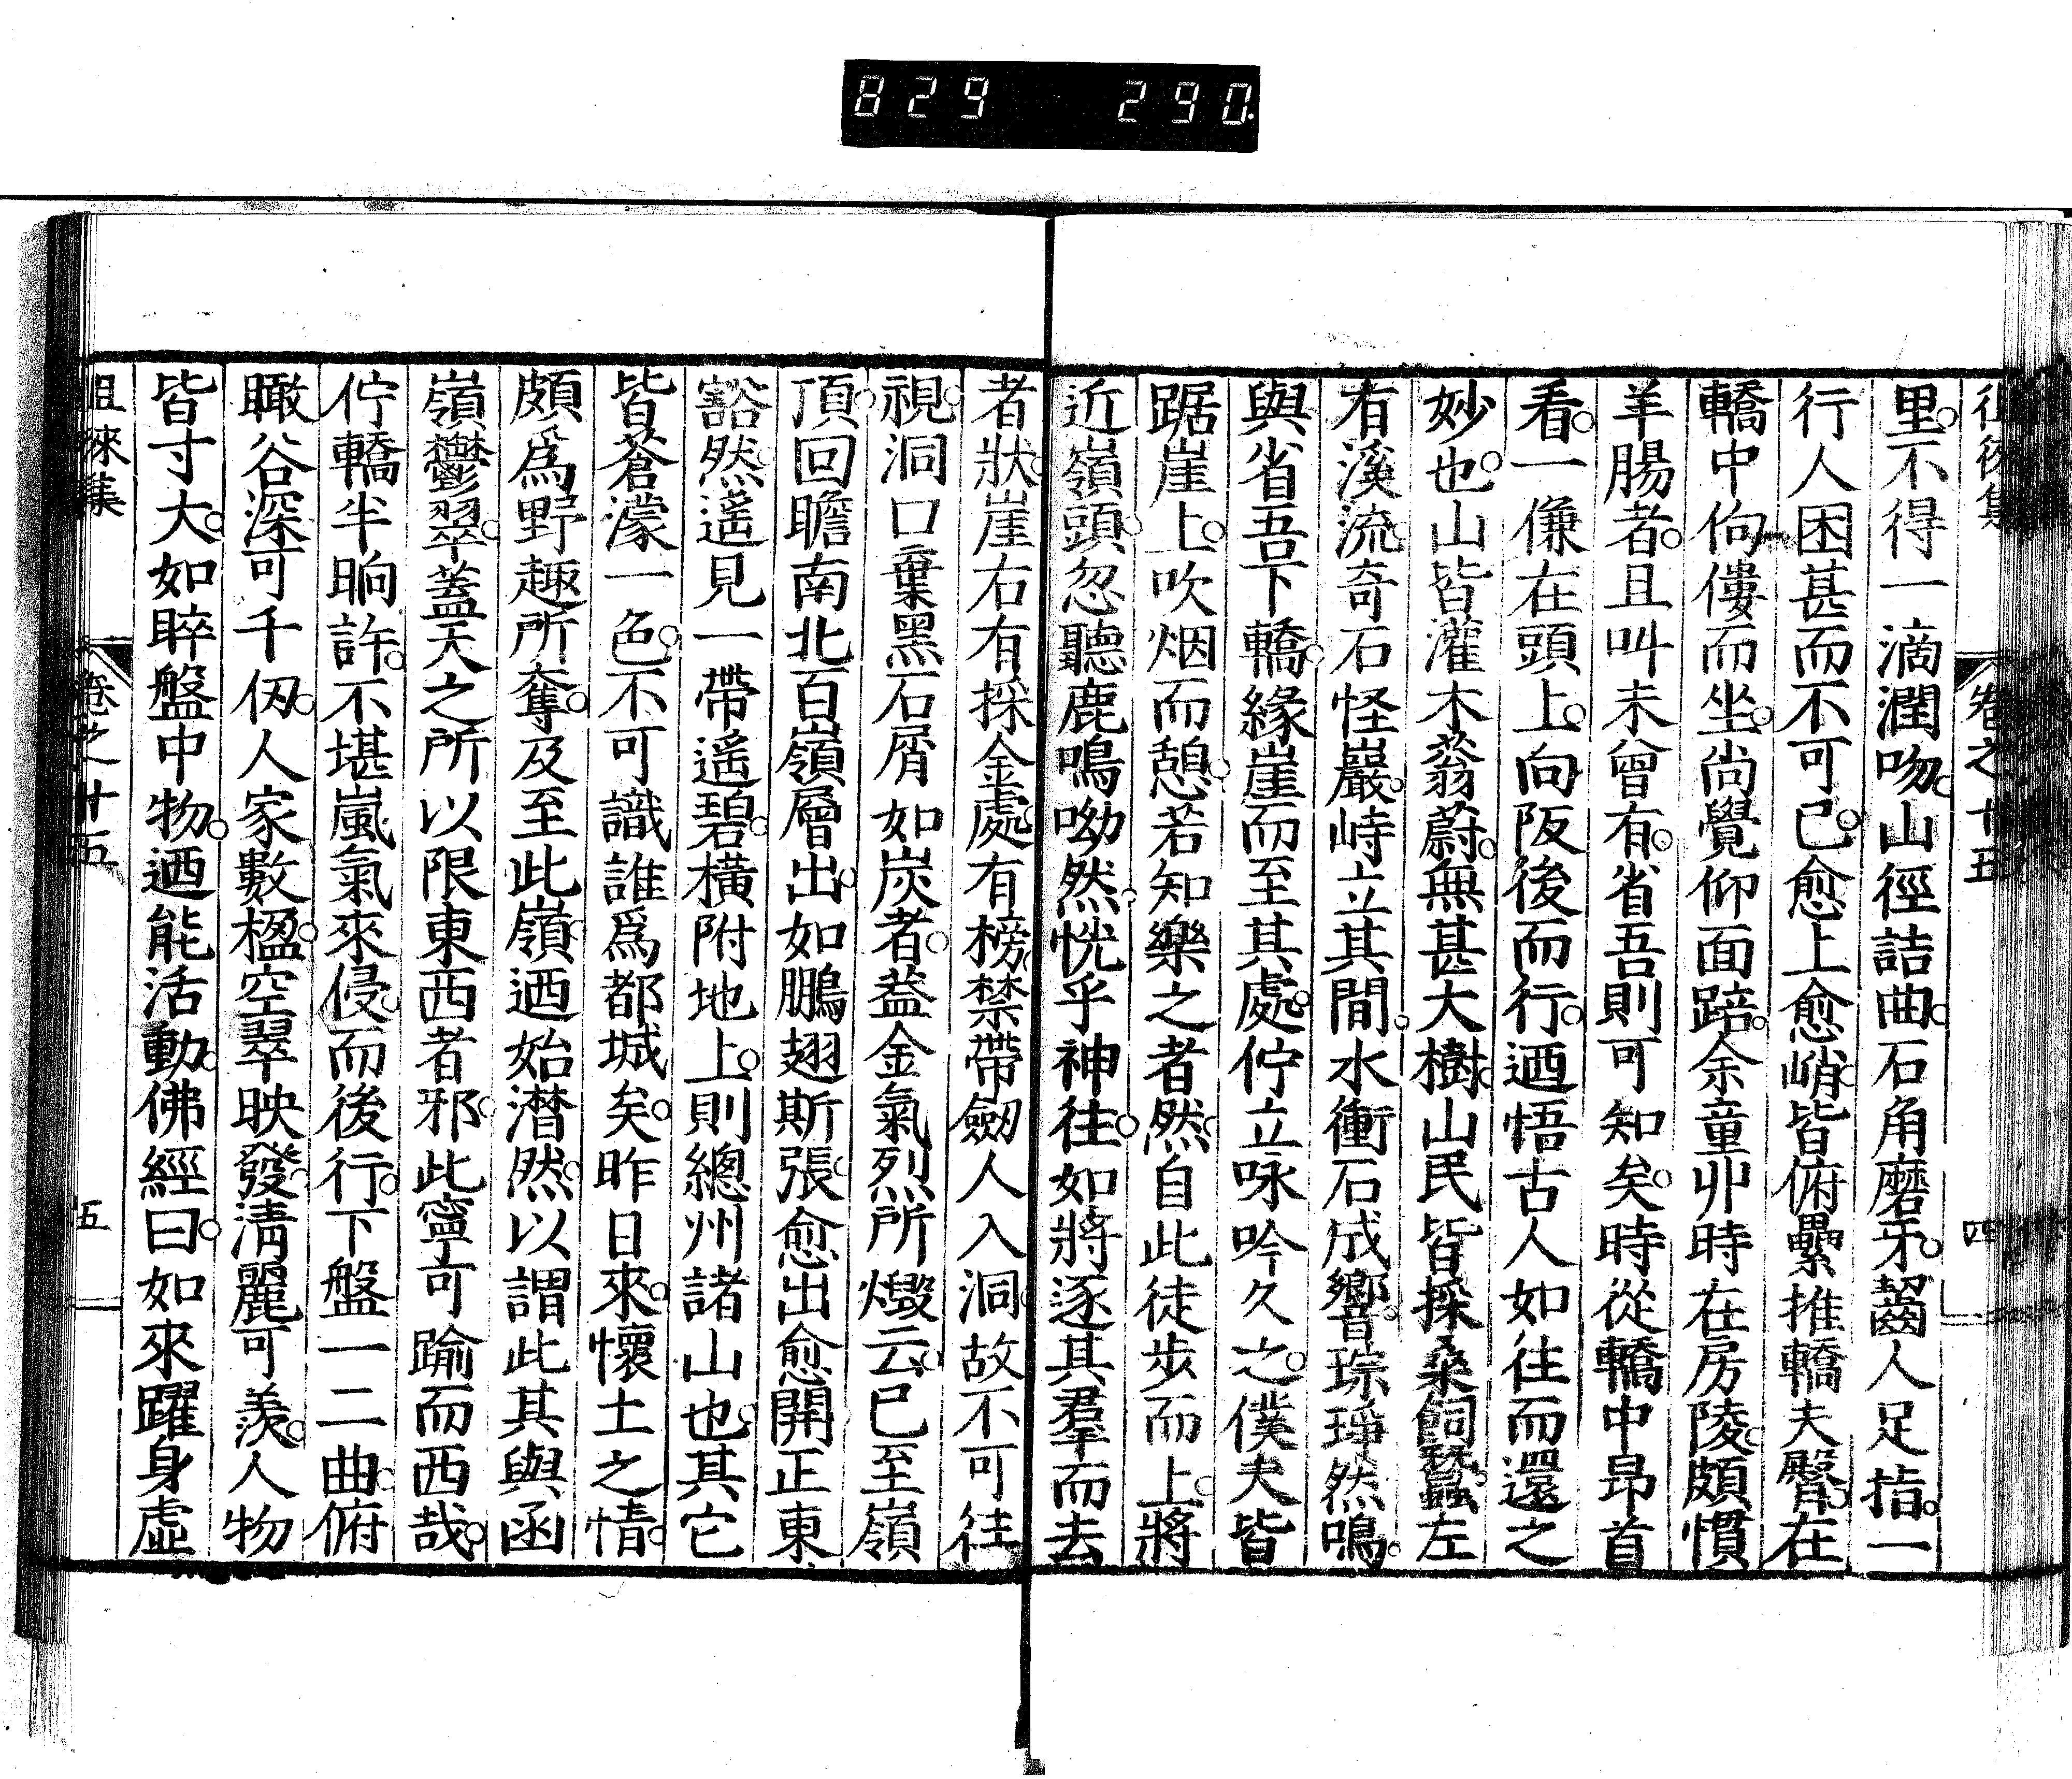 829 290.
徂徠集 卷之十五 四
里不得一滴潤吻山徑詰曲石角磨牙齧人足指一
行人困甚而不可已愈上愈峭皆俯纍推轎夫臀在
轎中佝僂而坐尚覺仰面踣余童丱時在房陵頗慣
羊腸者且叫未曾有省吾則可知矣時從轎中昂首
看一傔在頭上向阪後而行迺悟古人如往而還之
妙也山皆灌木蓊蔚無甚大樹山民皆採桑飼蠶左
有溪流奇石怪巖峙立其間水衝石成響琮琤然鳴
與省吾下轎緣崖而至其處佇立咏吟久之僕夫皆
踞崖上吹烟而憩若知樂之者然自此徒步而上將
近嶺頭忽聽鹿鳴呦然恍乎神往如將逐其羣而去
者狀崖右有採金處有榜禁帶劒人入洞故不可往
視洞口棄黑石屑如炭者葢金氣烈所燬云已至嶺
頂回瞻南北百嶺層出如鵬翅斯張愈出愈開正東
豁然遙見一帶遙碧橫附地上則總州諸山也其它
皆蒼濛一色不可識誰爲都城矣昨日來懷土之情
頗爲野趣所奪及至此嶺迺始潸然以謂此其與函
嶺鬱翠蓋天之所以限東西者邪此寧可踰而西哉
佇轎半晌許不堪嵐氣來侵而後行下盤一二曲俯
瞰谷深可千仭人家數楹空翠映發淸麗可羨人物
皆寸大如晬盤中物迺能活動佛經曰如來躍身虛
徂徠集 卷之十五 五